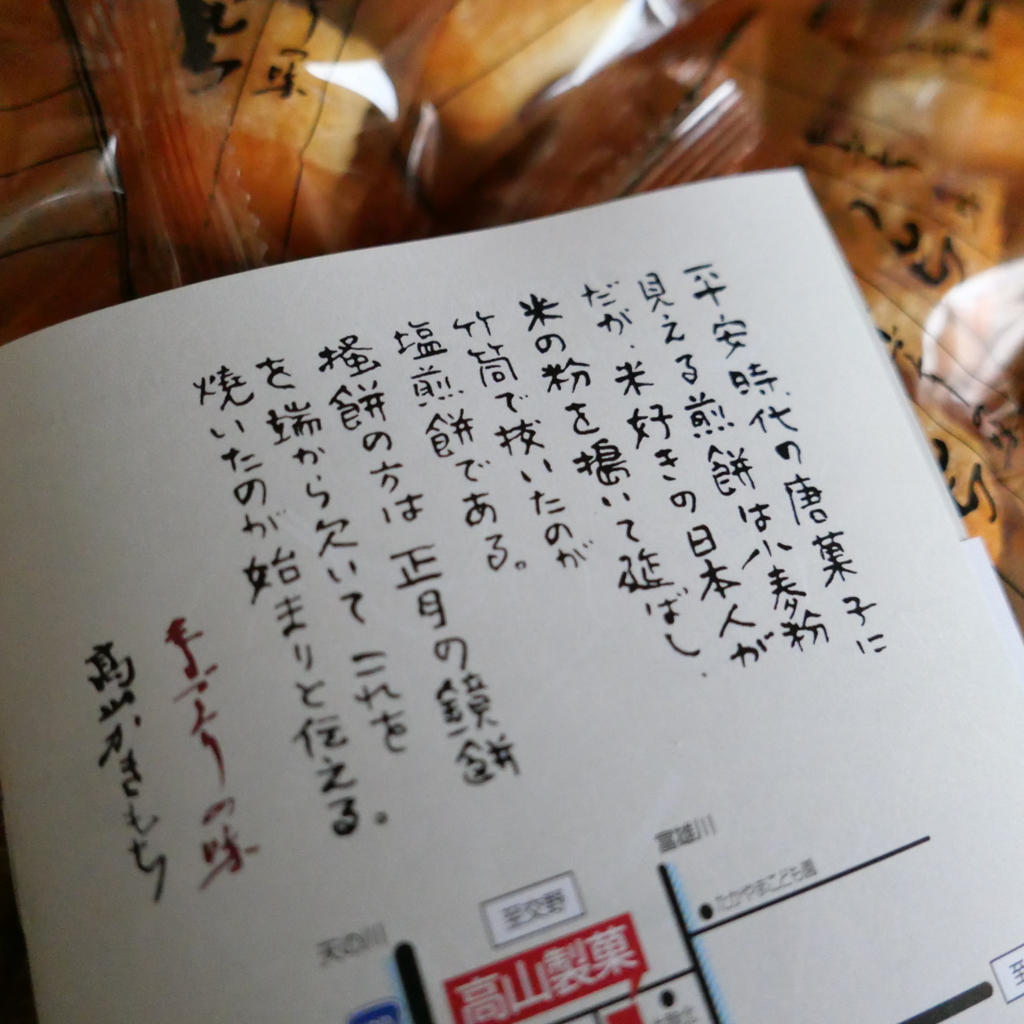 平安時代の唐菓子に
見える煎餅は小麦粉
だが、米好きの日本人が
米の粉を搗いて延ばし、
竹筒で抜いたのが
塩煎餅である。
掻餅の方は正月の鏡餅
を端から欠いてこれを
焼いたのが始まりと伝える。
手づくりの味
高山かきもち
富雄川
たかやまこども園
至交野
天の川
高山製菓
至
もち
味